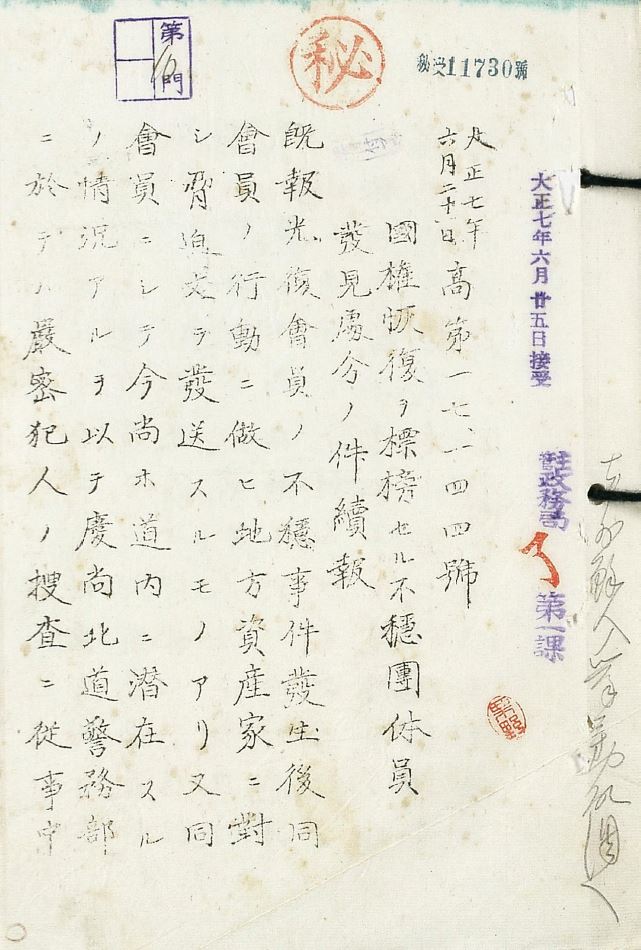 秘
秘受11730號
第 門
大正七年六月廿五日接受
主管政務局
第一課
大正七年
六月二十一日
高第一七、一四四號
國權恢復ヲ標榜セル不穩團体員
發見處分ノ件續報
既報光復會員ノ不穩事件發生後同
會員ノ行動ニ倣ヒ地方資産家ニ對
シ脅迫文ヲ發送スルモノアリ又同
會員ニシテ今尚ホ道内ニ潜在スル
ノ情況アルヲ以テ慶尚北道警務部
ニ於テハ嚴密犯人ノ搜査ニ従事中